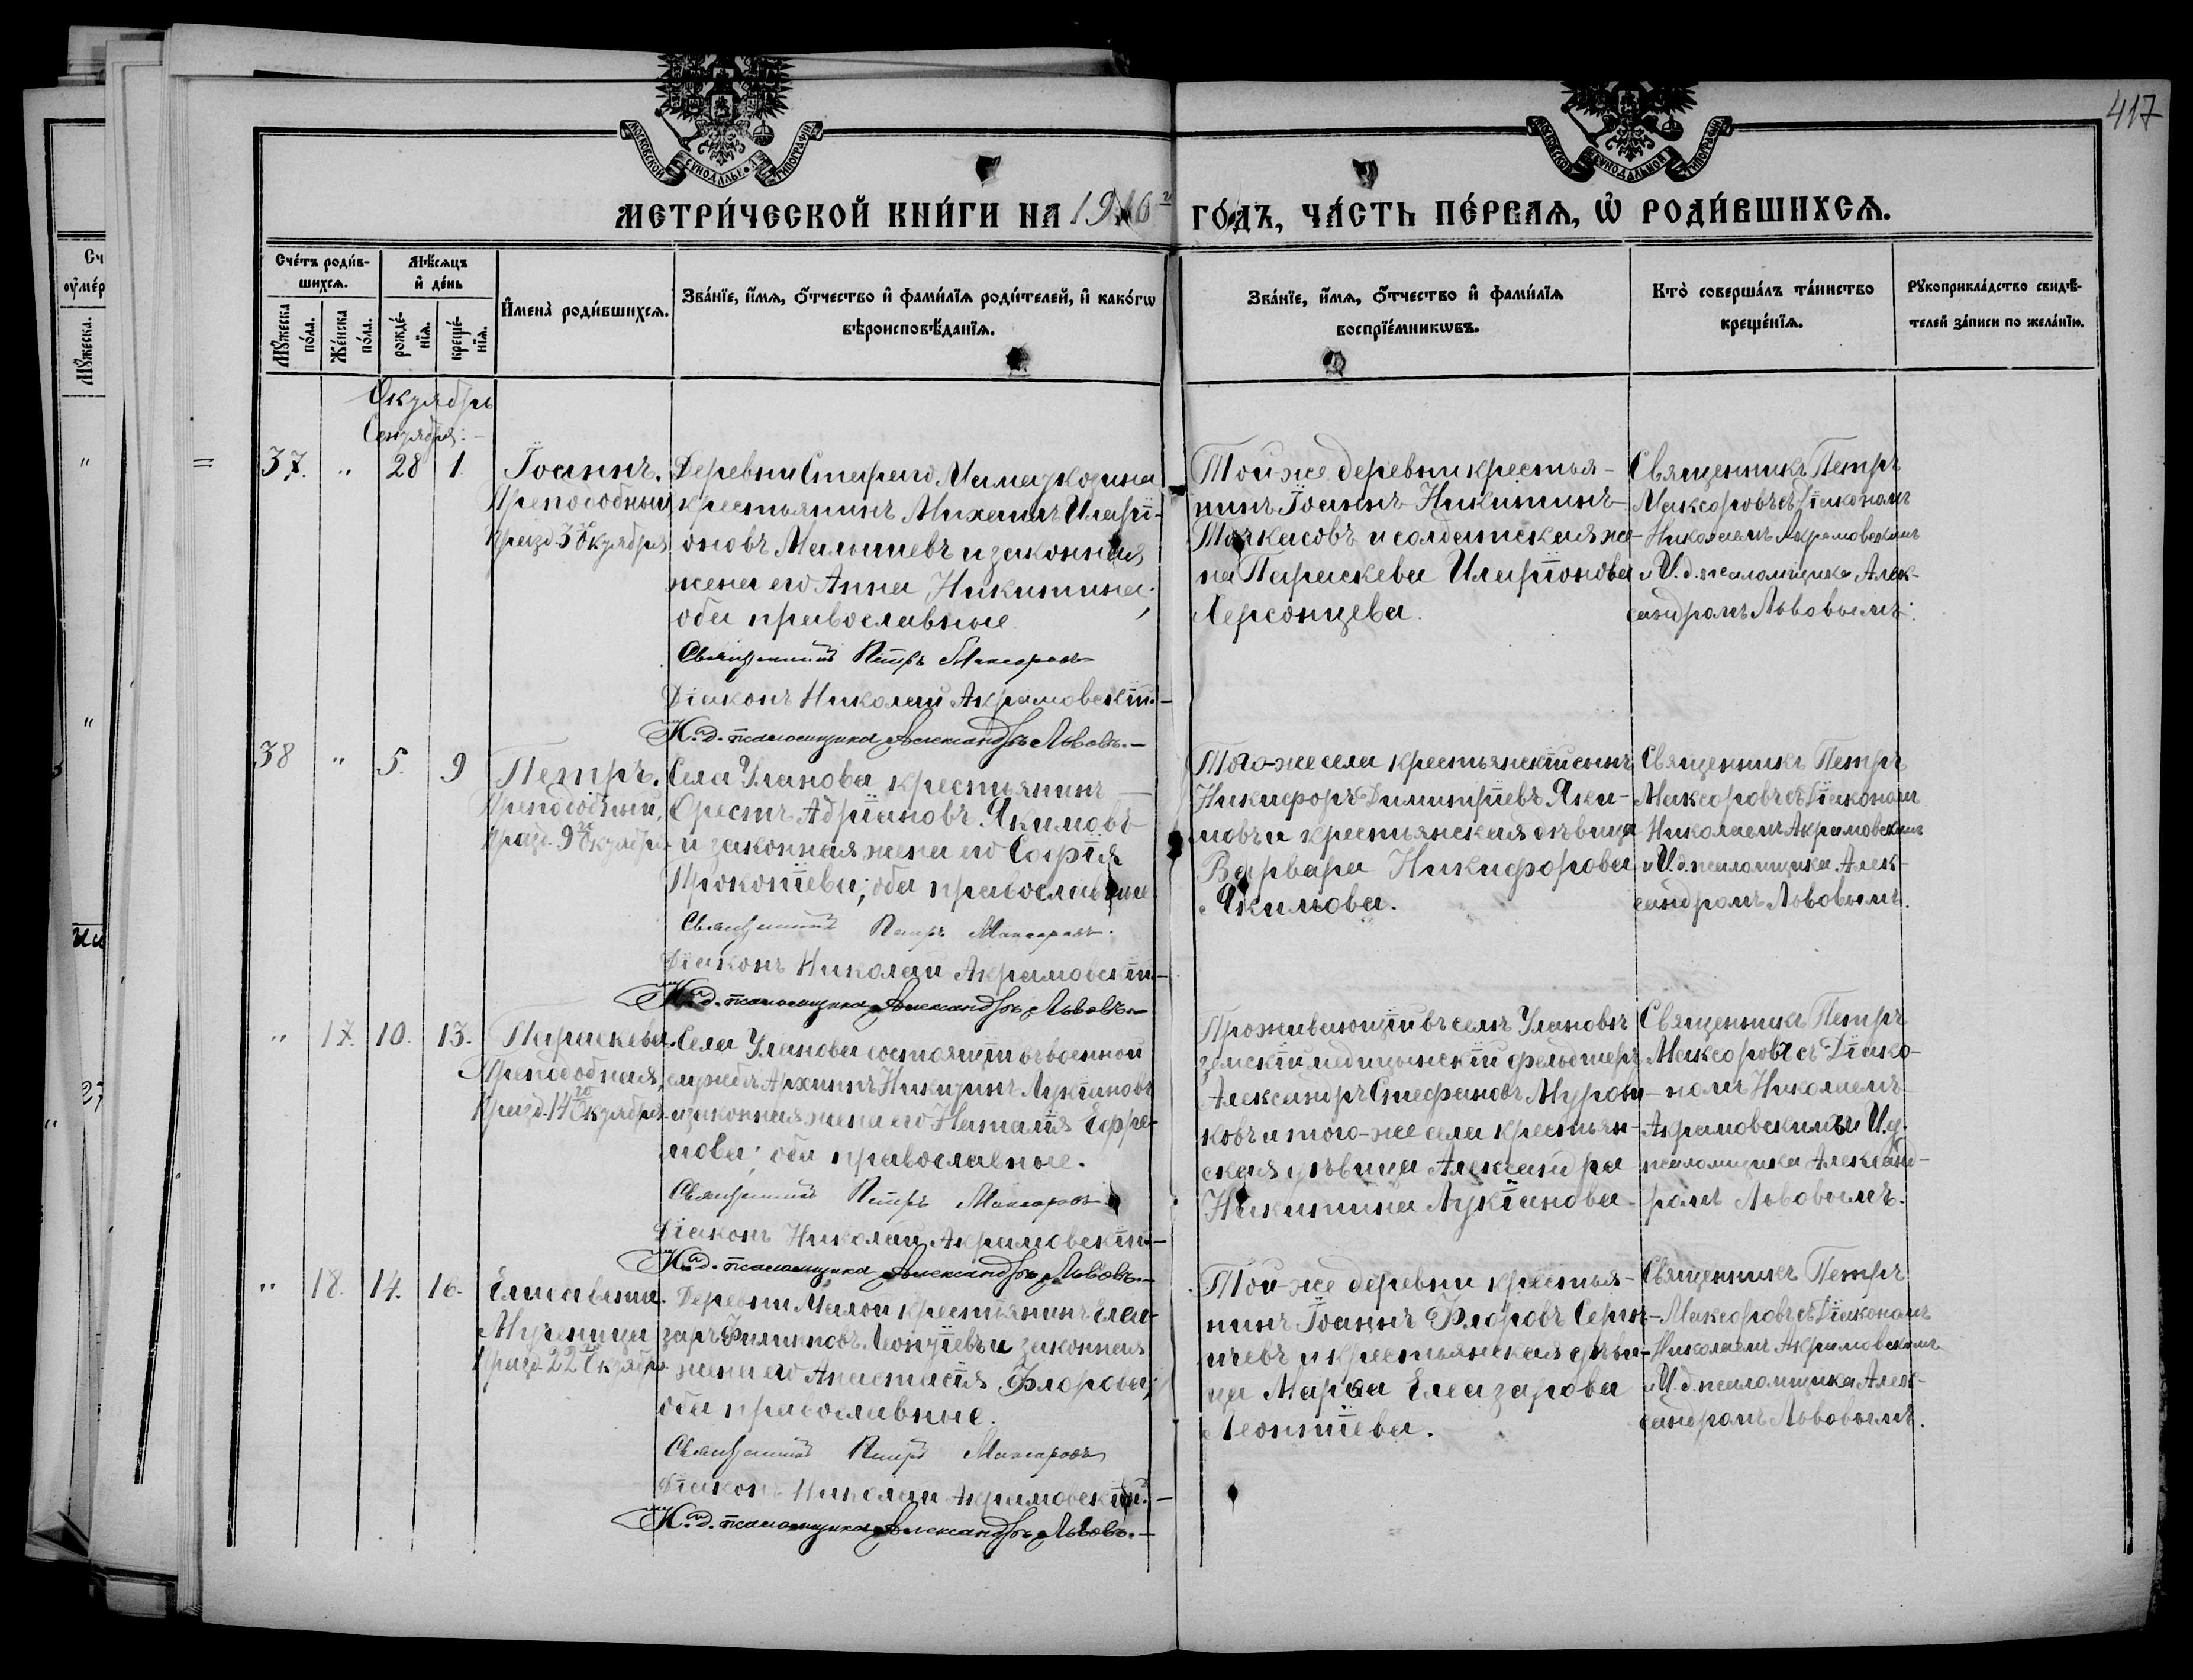 417
МОСКОВСКОЙ СѴНОДАЛЬНОЙ ТИПОГРАФІИ
МОСКОВСКОЙ СѴНОДАЛЬНОЙ ТИПОГРАФІИ
МЕТРИ́ЧЕСКОЙ КНИ́ГИ НА 1916 г ГО́ДЪ, ЧА́СТЬ ПЕ́РВАѦ, Ѡ҆ РОДИ́ВШИХСѦ.
Сче́тъ роди́в-
шихсѧ.
Мꙋ́жеска по́ла.
Же́нска по́ла.
Мѣ́сѧцъ
и҆ де́нь
рожде́-
нїѧ.
креще́-
нїѧ.
И҆мена̀ роди́вшихсѧ.
Зва́нїе, и҆́мѧ, ѻ҆́тчество и҆ фами́лїѧ роди́телей, и҆ како́гѡ
вѣроисповѣ́данїѧ.
Зва́нїе, и҆́мѧ, ѻ҆́тчество и҆ фами́лїѧ
воспрїе́мникѡвъ.
Кто̀ соверша́лъ та́инство
креще́нїѧ.
Рꙋкоприкла́дство свидѣ́-
телей за́писи по жела́нїю.
Октябрь
Сентября:
37. " 28 1.
Іоаннъ.
Преподобный
празд. 3го Октября
Деревни Стараго
крестьянинъ Михаилъ Иларі-
оновъ Малышевъ и законная
жена его Анна Никитина;
оба православные
Священникъ Петръ Максоровъ
Діаконъ Николай Акрамовскій.
И. д. псаломщика Александръ Львовъ.
Той-же деревни крестья-
нинъ Іоаннъ Никитинъ
Точкасовъ и солдатская же-
на Параскева Иларіонова
Херсонцева.
Священникъ Петръ
Максоровъ съ Діакономъ
Николаемъ Акрамовскимъ
и И. д. псаломщика Алек-
сандромъ Львовымъ.
38 " 5. 9
Петръ.
Преподобный,
празд. 9го Октября
Села Уланова крестьянинъ
Орестъ Адріановъ Якимовъ
и законная жена его Софія
Прокопіева; оба православные.
Священникъ Петръ Максоровъ.
Діаконъ Николай Акрамовскій.
И. д. псаломщика Александръ Львовъ.
Того-же села крестьянскій сынъ
Никифоръ Димитріевъ Яки-
мовъ и крестьянская дѣвица
Варвара Никифорова
Якимова.
Священникъ Петръ
Максоровъ съ Діакономъ
Николаемъ Акрамовскимъ
и И. д. псаломщика Алек-
сандромъ Львовымъ.
" 17. 10. 13.
Параскева.
Преподобная,
празд. 14го Октября
Села Уланова состоящій въ военной
службѣ Архипъ Никитинъ Лукіановъ
и законная жена его Наталія Ефре-
мова; оба православные.
Священникъ Петръ Максоровъ
Діаконъ Николай Акрамовскій.
И. д. псаломщика Александръ Львовъ.
Проживающій въ селѣ Улановѣ
земскій медицынскій фельдшеръ
Александръ Стефановъ
ковъ и того-же села крестьян-
ская дѣвица Александра
Никитина Лукіанова.
Священникъ Петръ
Максоровъ съ Діако-
номъ Николаемъ
Акрамовскимъ и И. д.
псаломщика Алексан-
ромъ Львовымъ.
" 18. 14. 16.
Елисавета.
Мученица
празд. 22го Октября
Деревни Малой крестьянинъ Елеа-
заръ Филипповъ Леонтіевъ и законная
жена его Анастасія Флорова;
оба православные.
Священникъ Петръ Максоровъ
Діаконъ Николай Акрамовскій.
И. д. псаломщика Александръ Львовъ.
Той-же деревни крестья-
нинъ Іоаннъ Флоровъ Серги-
ичевъ и крестьянская дѣви-
ца Марѳа Елеазарова
Леонтіева.
Священникъ Петръ
Максоровъ съ Діакономъ
Николаемъ Акрамовскимъ
и И. д. псаломщика Алек-
сандромъ Львовымъ.